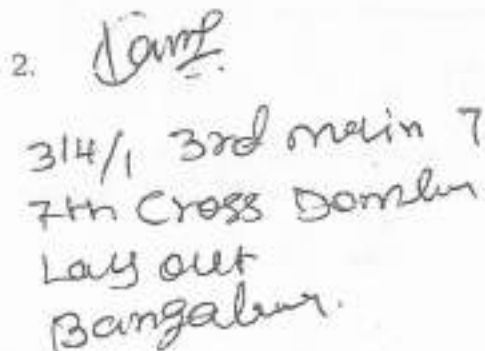 2.
314/1 3rd main 7
7th Cross Domlur
Lay out
Bangalur.